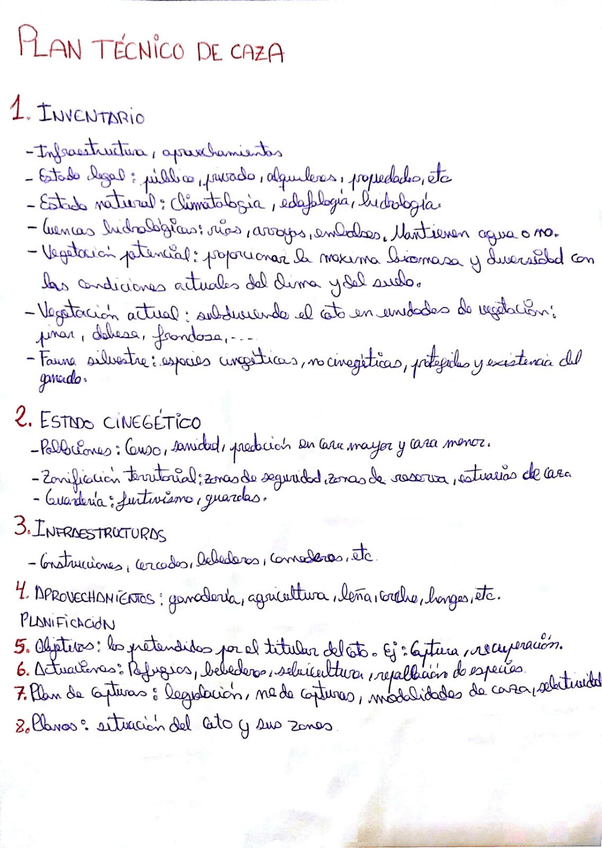 PLAN TÉCNICO DE CAZA
1. INVENTARIO
- Infraestructura, aprovechamientos
- Estado legal: público, privado, alquileres, propiedades, etc
- Estado natural: Climatología, edafología, hidrología.
- Cuencas hidrológicas: ríos, arroyos, embalses. Mantienen agua o no.
- Vegetación potencial: proporcionar la maxima biomasa y diversidad con
las condiciones actuales del clima y del suelo.
- Vegetación actual: subdividiendo el coto en unidades de vegetación:
pinar, dehesa, frondosa, ...
- Fauna silvestre: especies cinegéticas, no cinegéticas, protegidas y existencia del
ganado.
2. ESTADO CINEGÉTICO
- Poblaciones: Censo, sanidad, predación en caza mayor y caza menor.
- Zonificación territorial: zonas de seguridad, zonas de reserva, de caza
- Guardería: furtivismo, guardas.
3. INFRAESTRUCTURAS
- Construcciones, cercados, bebederos, comederos, etc.
4. APROVECHAMIENTOS: ganadería, agricultura, leña, corcho, hongos, etc.
PLANIFICACIÓN
5. Objetivos: los pretendidos por el titular del coto. Ej: Captura, recuperación.
6. Actuaciones: Refugios, bebederos, selvicultura, repoblación de especies.
7. Plan de capturas: legislación, nº de capturas, modalidades de caza, selectividad
8. Planos: situación del coto y sus zonas.